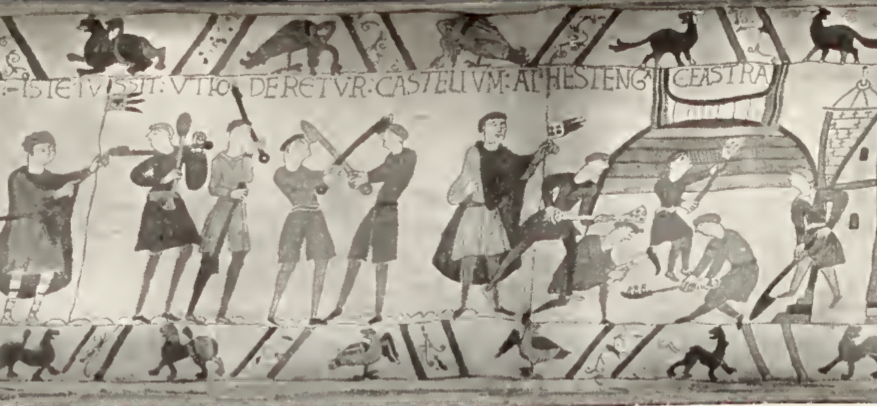 : ISTE IVSSIT : VT FODERETVR : CASTELLVM : AT HESTENGA CEASTRA